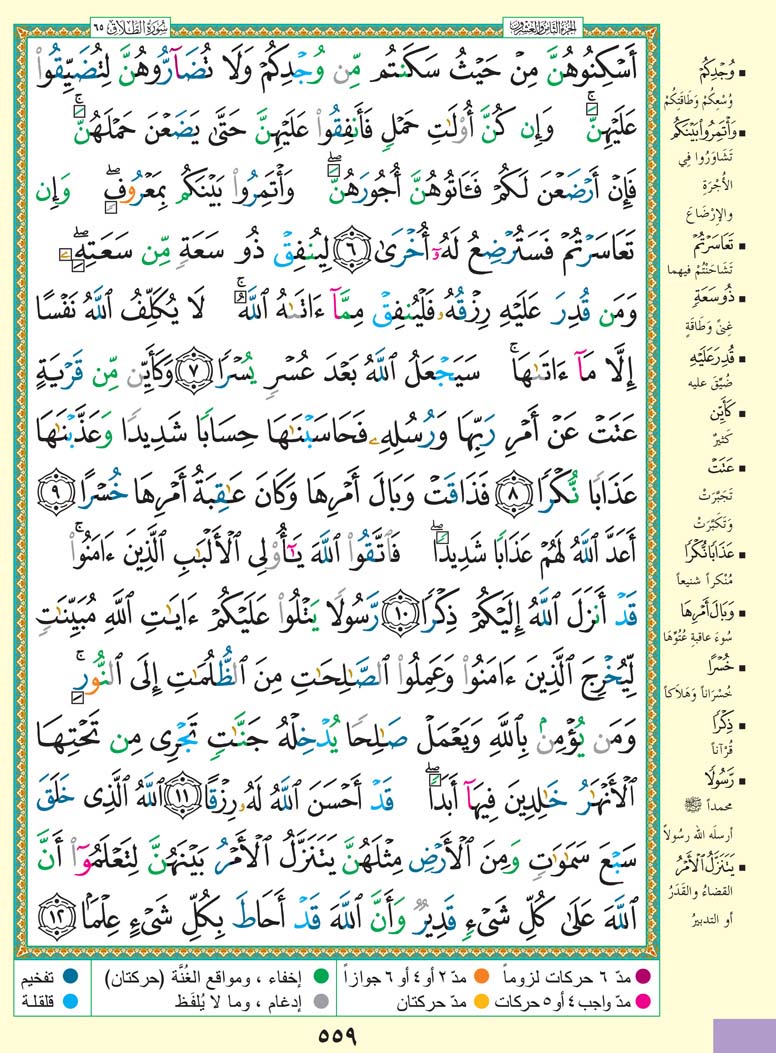 سُورَةُ الطَّلَاق ٦٥
الجزء الثامن والعشرون
أَسْكِنُوهُنَّ مِنْ حَيْثُ سَكَنتُم مِّن وُجْدِكُمْ وَلَا تُضَآرُّوهُنَّ لِتُضَيِّقُوا۟
عَلَيْهِنَّ ۚ وَإِن كُنَّ أُو۟لَٰتِ حَمْلٍ فَأَنفِقُوا۟ عَلَيْهِنَّ حَتَّىٰ يَضَعْنَ حَمْلَهُنَّ ۚ
فَإِنْ أَرْضَعْنَ لَكُمْ فَـَٔاتُوهُنَّ أُجُورَهُنَّ ۖ وَأْتَمِرُوا۟ بَيْنَكُم بِمَعْرُوفٍ ۖ وَإِن
تَعَاسَرْتُمْ فَسَتُرْضِعُ لَهُۥٓ أُخْرَىٰ ﴿٦﴾ لِيُنفِقْ ذُو سَعَةٍ مِّن سَعَتِهِۦ ۖ
وَمَن قُدِرَ عَلَيْهِ رِزْقُهُۥ فَلْيُنفِقْ مِمَّآ ءَاتَىٰهُ ٱللَّهُ ۚ لَا يُكَلِّفُ ٱللَّهُ نَفْسًا
إِلَّا مَآ ءَاتَىٰهَا ۚ سَيَجْعَلُ ٱللَّهُ بَعْدَ عُسْرٍ يُسْرًا ﴿٧﴾ وَكَأَيِّن مِّن قَرْيَةٍ
عَتَتْ عَنْ أَمْرِ رَبِّهَا وَرُسُلِهِۦ فَحَاسَبْنَٰهَا حِسَابًا شَدِيدًا وَعَذَّبْنَٰهَا
عَذَابًا نُّكْرًا ﴿٨﴾ فَذَاقَتْ وَبَالَ أَمْرِهَا وَكَانَ عَٰقِبَةُ أَمْرِهَا خُسْرًا ﴿٩﴾
أَعَدَّ ٱللَّهُ لَهُمْ عَذَابًا شَدِيدًا ۖ فَٱتَّقُوا۟ ٱللَّهَ يَٰٓأُو۟لِى ٱلْأَلْبَٰبِ ٱلَّذِينَ ءَامَنُوا۟ ۚ
قَدْ أَنزَلَ ٱللَّهُ إِلَيْكُمْ ذِكْرًا ﴿١٠﴾ رَّسُولًا يَتْلُوا۟ عَلَيْكُمْ ءَايَٰتِ ٱللَّهِ مُبَيِّنَٰتٍ
لِّيُخْرِجَ ٱلَّذِينَ ءَامَنُوا۟ وَعَمِلُوا۟ ٱلصَّٰلِحَٰتِ مِنَ ٱلظُّلُمَٰتِ إِلَى ٱلنُّورِ ۚ
وَمَن يُؤْمِنۢ بِٱللَّهِ وَيَعْمَلْ صَٰلِحًا يُدْخِلْهُ جَنَّٰتٍ تَجْرِى مِن تَحْتِهَا
ٱلْأَنْهَٰرُ خَٰلِدِينَ فِيهَآ أَبَدًا ۖ قَدْ أَحْسَنَ ٱللَّهُ لَهُۥ رِزْقًا ﴿١١﴾ ٱللَّهُ ٱلَّذِى خَلَقَ
سَبْعَ سَمَٰوَٰتٍ وَمِنَ ٱلْأَرْضِ مِثْلَهُنَّ يَتَنَزَّلُ ٱلْأَمْرُ بَيْنَهُنَّ لِتَعْلَمُوٓا۟ أَنَّ
ٱللَّهَ عَلَىٰ كُلِّ شَىْءٍ قَدِيرٌ وَأَنَّ ٱللَّهَ قَدْ أَحَاطَ بِكُلِّ شَىْءٍ عِلْمًۢا ﴿١٢﴾
▪ وُجْدِكُمْ
وُسْعِكُمْ وَطَاقَتِكُمْ
▪ وَأْتَمِرُوا۟ بَيْنَكُم
تَشَاوَرُوا فِي
الأُجْرَةِ
والإِرْضَاعَ
▪ تَعَاسَرْتُمْ
تَشَاحَنْتُمْ فيهما
▪ ذُو سَعَةٍ
غِنىً وَطَاقَةٍ
▪ قُدِرَ عَلَيْهِ
ضُيِّقَ عليه
▪ كَأَيِّن
كَثيرٌ
▪ عَتَتْ
تَجَبَّرَتْ
وَتَكَبَّرَتْ
▪ عَذَابًا نُّكْرًا
مُنْكراً شنيعاً
▪ وَبَالَ أَمْرِهَا
سُوءَ عاقبةِ عُتُوِّهَا
▪ خُسْرًا
خُسْرَاناً وَهَلَاكاً
▪ ذِكْرًا
قُرْآناً
▪ رَّسُولًا
محمداً ﷺ
أرسلَه الله رسُولاً
▪ يَتَنَزَّلُ ٱلْأَمْرُ
القضاءُ والقَدَرُ
أو التدبيرُ
مدّ ٦ حركات لزوماً
مدّ ٢ أو ٤ أو ٦ جوازاً
إخفاء ، ومواقع الغُنَّة (حركتان)
تفخيم
مدّ واجب ٤ أو ٥ حركات
مدّ حركتان
إدغام ، وما لا يُلفَظ
قلقلة
٥٥٩